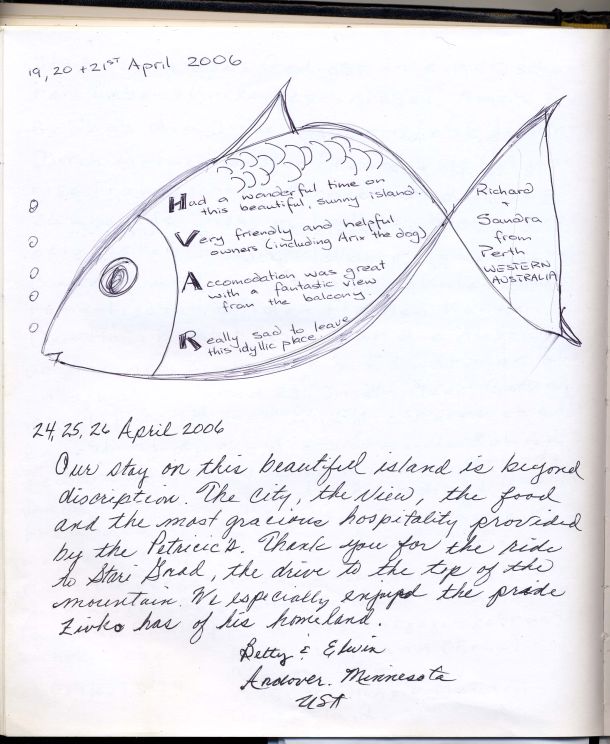 19, 20 + 21ST April 2006
Had a wonderful time on
this beautiful, sunny island.
Very friendly and helpful
owners (including Arix the dog)
Accomodation was great
with a fantastic view
from the balcony.
Really sad to leave
this idyllic place
Richard
+
Sandra
from
Perth
WESTERN
AUSTRALIA
24, 25, 26 April 2006
Our stay on this beautiful island is beyond
discription. The city, the view, the food
and the most gracious hospitality provided
by the Petricic's. Thank you for the ride
to Stari Grad, the drive to the top of the
mountain. We especially enjoyed the pride
Zivko has of his homeland.
Betty & Edwin
Andover, Minnesota
USA